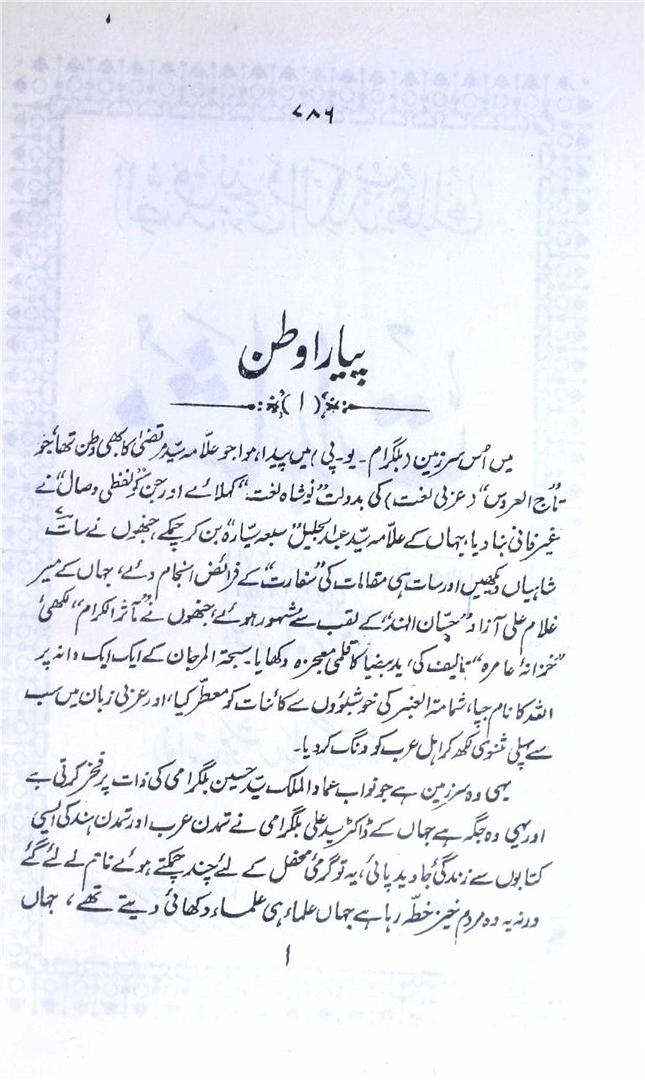 ۷۸۶
پیارا وطن
(۱)
میں اُس سرزمین (بلگرام۔ یو۔پی) میں پیدا ہوا جو علامہ سیّد مرتضیٰ کا بھی وطن تھا، جو
"تاج العروس" (عربی لغت) کی بدولت "نوشاہ لغت" کہلائے اور جن کو لفظی وصال نے
غیرفانی بنا دیا، جہاں کے علامہ سیّد عبدالجلیل "سبعہ سیّارہ" بن کر چمکے، جنھوں نے سات
شاہیاں دیکھیں اور سات ہی مقامات کی "سفارت" کے فرائض انجام دئے، جہاں کے میر
غلام علی آزاد "حسّان الہند" کے لقب سے مشہور ہوئے، جنھوں نے "مآثر الکرام" لکھی
"خزانۂ عامرہ" تالیف کی، ید بیضا کا قلمی معجزہ دکھایا۔ سبحۃ المرجان کے ایک ایک دانہ پر
اللہ کا نام جپا، شمامۃ العنبر کی خوشبوؤں سے کائنات کو معطر کیا، اور عربی زبان میں سب
سے پہلی مثنوی لکھ کر اہل عرب کو دنگ کر دیا۔
یہی وہ سرزمین ہے جو نواب عماد الملک سیّد حسین بلگرامی کی ذات پر فخر کرتی ہے
اور یہی وہ جگہ ہے جہاں کے ڈاکٹر سید علی بلگرامی نے تمدن عرب اور تمدن ہند کی ایسی
کتابوں سے زندگیٔ جاوید پائی، یہ تو گرمیٔ محفل کے لئے چند چمکتے ہوئے نام لے لئے گئے
ورنہ یہ وہ مردم خیز خطّہ رہا ہے جہاں علماء ہی علماء دکھائی دیتے تھے، جہاں
۱